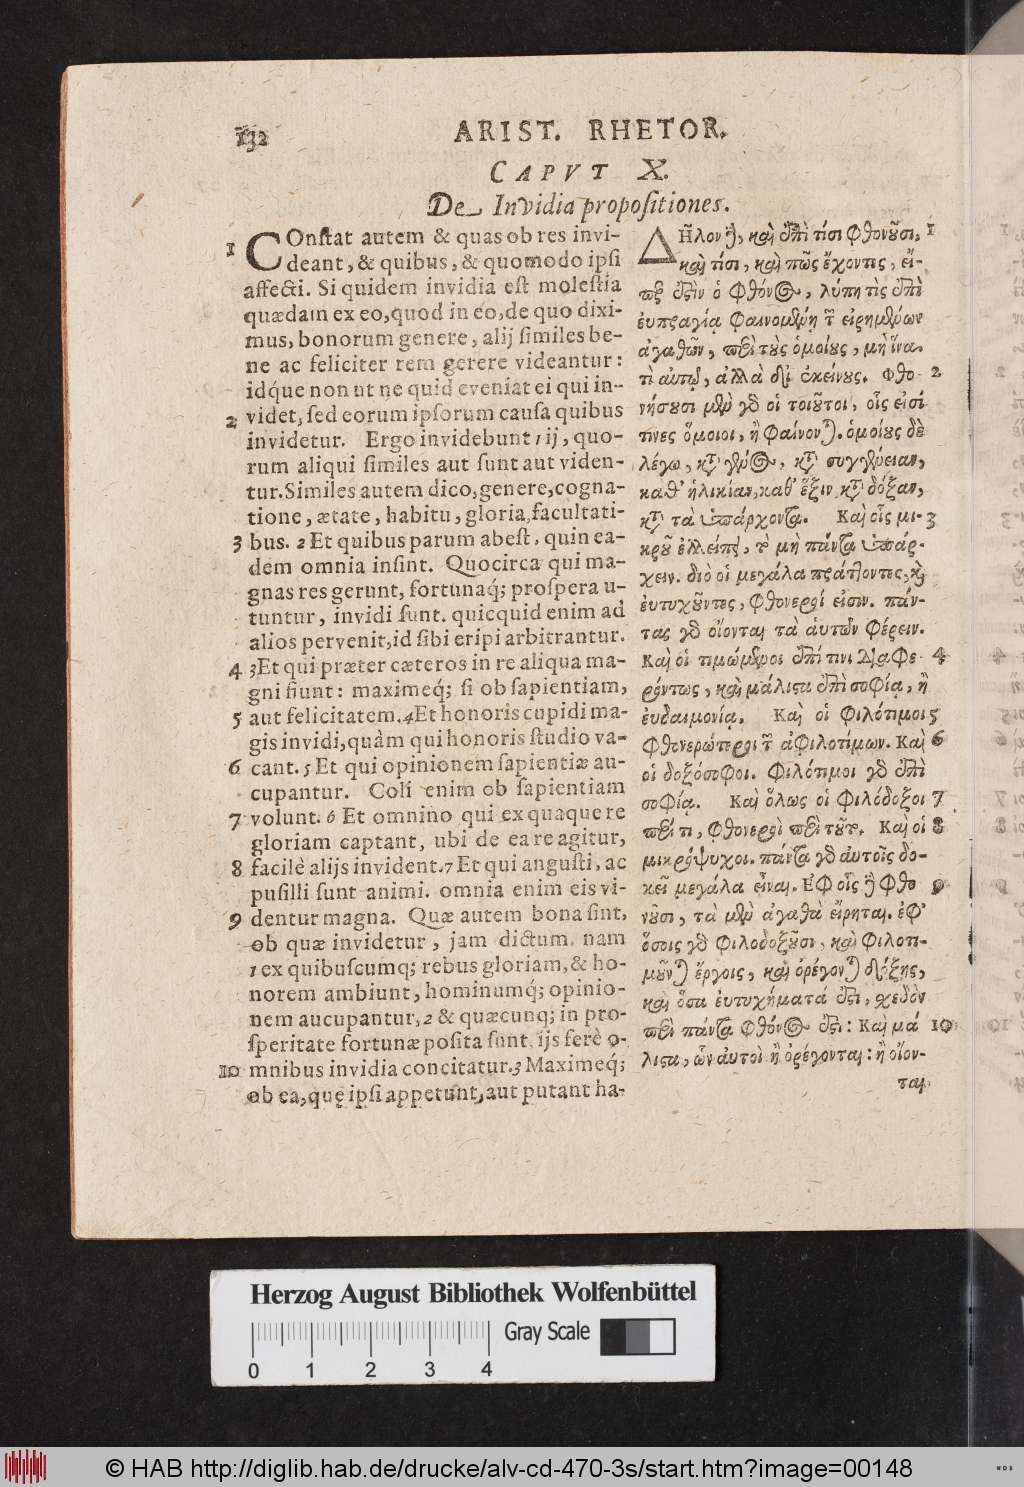 132
ARIST. RHETOR.
CAPVT X.
De Invidia propositiones.
1 COnstat autem & quas ob res invi-
deant, & quibus, & quomodo ipsi
affecti. Si quidem invidia est molestia
quædam ex eo, quod in eo, de quo dixi-
mus, bonorum genere, alij similes be-
ne ac feliciter rem gerere videantur:
idq́ue non ut ne quid eveniat ei qui in-
2 videt, sed eorum ipsorum causa quibus
invidetur. Ergo invidebunt 1 ij, quo-
rum aliqui similes aut sunt aut viden-
tur. Similes autem dico, genere, cogna-
tione, ætate, habitu, gloria, facultati-
3 bus. 2 Et quibus parum abest, quin ea-
dem omnia insint. Quocirca qui ma-
gnas res gerunt, fortunaq́; prospera u-
tuntur, invidi sunt. quicquid enim ad
alios pervenit, id sibi eripi arbitrantur.
4 3 Et qui præter cæteros in re aliqua ma-
gni fiunt: maximeq́; si ob sapientiam,
5 aut felicitatem. 4 Et honoris cupidi ma-
gis invidi, quàm qui honoris studio va-
6 cant. 5 Et qui opinionem sapientiæ au-
cupantur. Coli enim ob sapientiam
7 volunt. 6 Et omnino qui ex quaque re
gloriam captant, ubi de ea re agitur,
8 facilè alijs invident. 7 Et qui angusti, ac
pusilli sunt animi. omnia enim eis vi-
9 dentur magna. Quæ autem bona sint,
ob quæ invidetur, jam dictum. nam
1 ex quibuscumq; rebus gloriam, & ho-
norem ambiunt, hominumq́; opinio-
nem aucupantur, 2 & quæcunq; in pro-
speritate fortunæ posita sunt, ijs ferè o-
10 mnibus invidia concitatur. 3 Maximeq́;
ob ea, quę ipsi appetunt, aut putant ha-
Δῆλον ἢ, καὶ ἐπὶ τίσι φθονοῦσι, 1
καὶ τίσι, καὶ πῶς ἔχοντες, εἴ-
περ ἐστὶν ὁ φθόνος, λύπη τὶς ἐπὶ
εὐπραγίᾳ φαινομένῃ τῶν εἰρημένων
ἀγαθῶν, περὶ τοὺς ὁμοίους, μὴ ἵνα
τὶ αὐτῷ, ἀλλὰ δι' ἐκείνους. Φθο- 2
νήσουσι μὲν γὰρ οἱ τοιοῦτοι, οἷς εἰσί
τινες ὅμοιοι, ἢ φαίνονται. ὁμοίους δὲ
λέγω, κατὰ γένος, κατὰ συγγένειαν,
καθ' ἡλικίαν, καθ' ἕξιν, κατὰ δόξαν,
κατὰ τὰ ὑπάρχοντα. Καὶ οἷς μι- 3
κροῦ ἐλλείπει, τὸ μὴ πάντα ὑπάρ-
χειν. διὸ οἱ μεγάλα πράττοντες, καὶ
εὐτυχοῦντες, φθονεροί εἰσιν. πάν-
τας γὰρ οἴονται τὰ αὑτῶν φέρειν.
Καὶ οἱ τιμώμενοι ἐπί τινι διαφε- 4
ρόντως, καὶ μάλιστα ἐπὶ σοφίᾳ, ἢ
εὐδαιμονίᾳ. Καὶ οἱ φιλότιμοι 5
φθονερώτεροι τῶν ἀφιλοτίμων. Καὶ 6
οἱ δοξόσοφοι. φιλότιμοι γὰρ ἐπὶ
σοφίᾳ. Καὶ ὅλως οἱ φιλόδοξοι 7
περί τι, φθονεροὶ περὶ τοῦτο. Καὶ οἱ 8
μικρόψυχοι. πάντα γὰρ αὐτοῖς δο-
κεῖ μεγάλα εἶναι. Ἐφ' οἷς ἢ φθο 9
νοῦσι, τὰ μὲν ἀγαθὰ εἴρηται. ἐφ'
ὅσοις γὰρ φιλοδοξοῦσι, καὶ φιλοτι-
μοῦνται ἔργοις, καὶ ὀρέγονται δόξης,
καὶ ὅσα εὐτυχήματά ἐστι, σχεδὸν
περὶ πάντα φθόνος ἐστι: Καὶ μά 10
λιστα, ὧν αὐτοὶ ἢ ὀρέγονται: ἢ οἴον-
ται
Herzog August Bibliothek Wolfenbüttel
Gray Scale
0 1 2 3 4
© HAB http://diglib.hab.de/drucke/alv-cd-470-3s/start.htm?image=00148